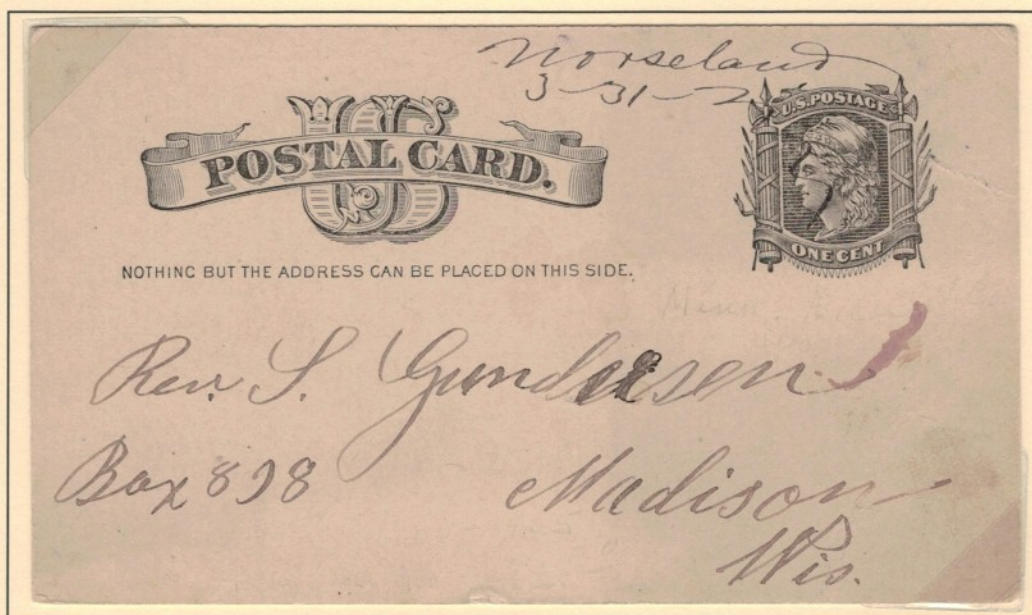 Norseland
3-31-2
U.S. POSTAGE
US
POSTAL CARD.
ONE CENT
NOTHING BUT THE ADDRESS CAN BE PLACED ON THIS SIDE.
Minn.
Rev. S. Gundersen
Box 898
Madison
Wis.